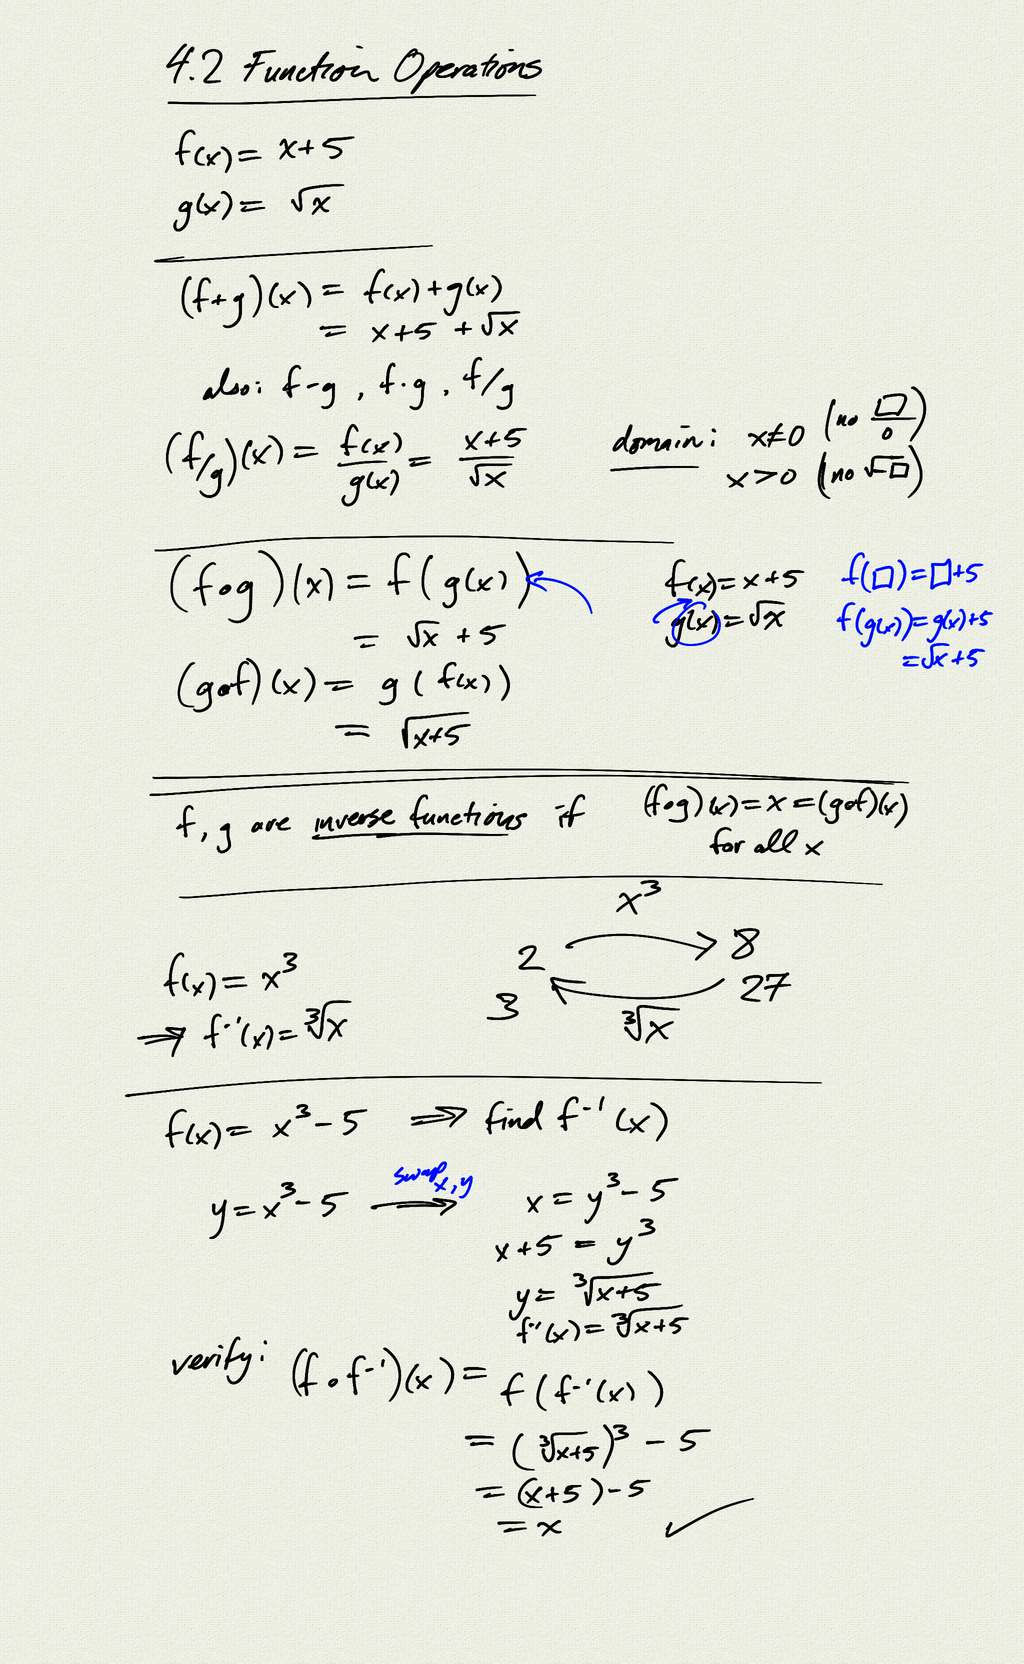 4.2 Function Operations
f(x) = x+5
g(x) = √x
(f+g)(x) = f(x)+g(x)
= x+5 +√x
also: f-g, f·g, f/g
(f/g)(x) = f(x)/g(x) = (x+5)/√x
domain: x≠0 (no □/0)
x>0 (no √-□)
(f∘g)(x) = f(g(x))
= √x +5
f(x)=x+5
g(x)=√x
f(□)=□+5
f(g(x))=g(x)+5
=√x+5
(g∘f)(x) = g(f(x))
= √(x+5)
f, g are inverse functions if (f∘g)(x)=x=(g∘f)(x)
for all x
f(x)= x³
⇒ f⁻¹(x)=∛x
x³
2 8
3 27
∛x
f(x)= x³-5 ⇒ find f⁻¹(x)
y=x³-5 swap x,y ⇒ x=y³-5
x+5 = y³
y= ∛(x+5)
f⁻¹(x)=∛(x+5)
verify: (f∘f⁻¹)(x)= f(f⁻¹(x))
= (∛(x+5))³ - 5
= (x+5)-5
= x ✓